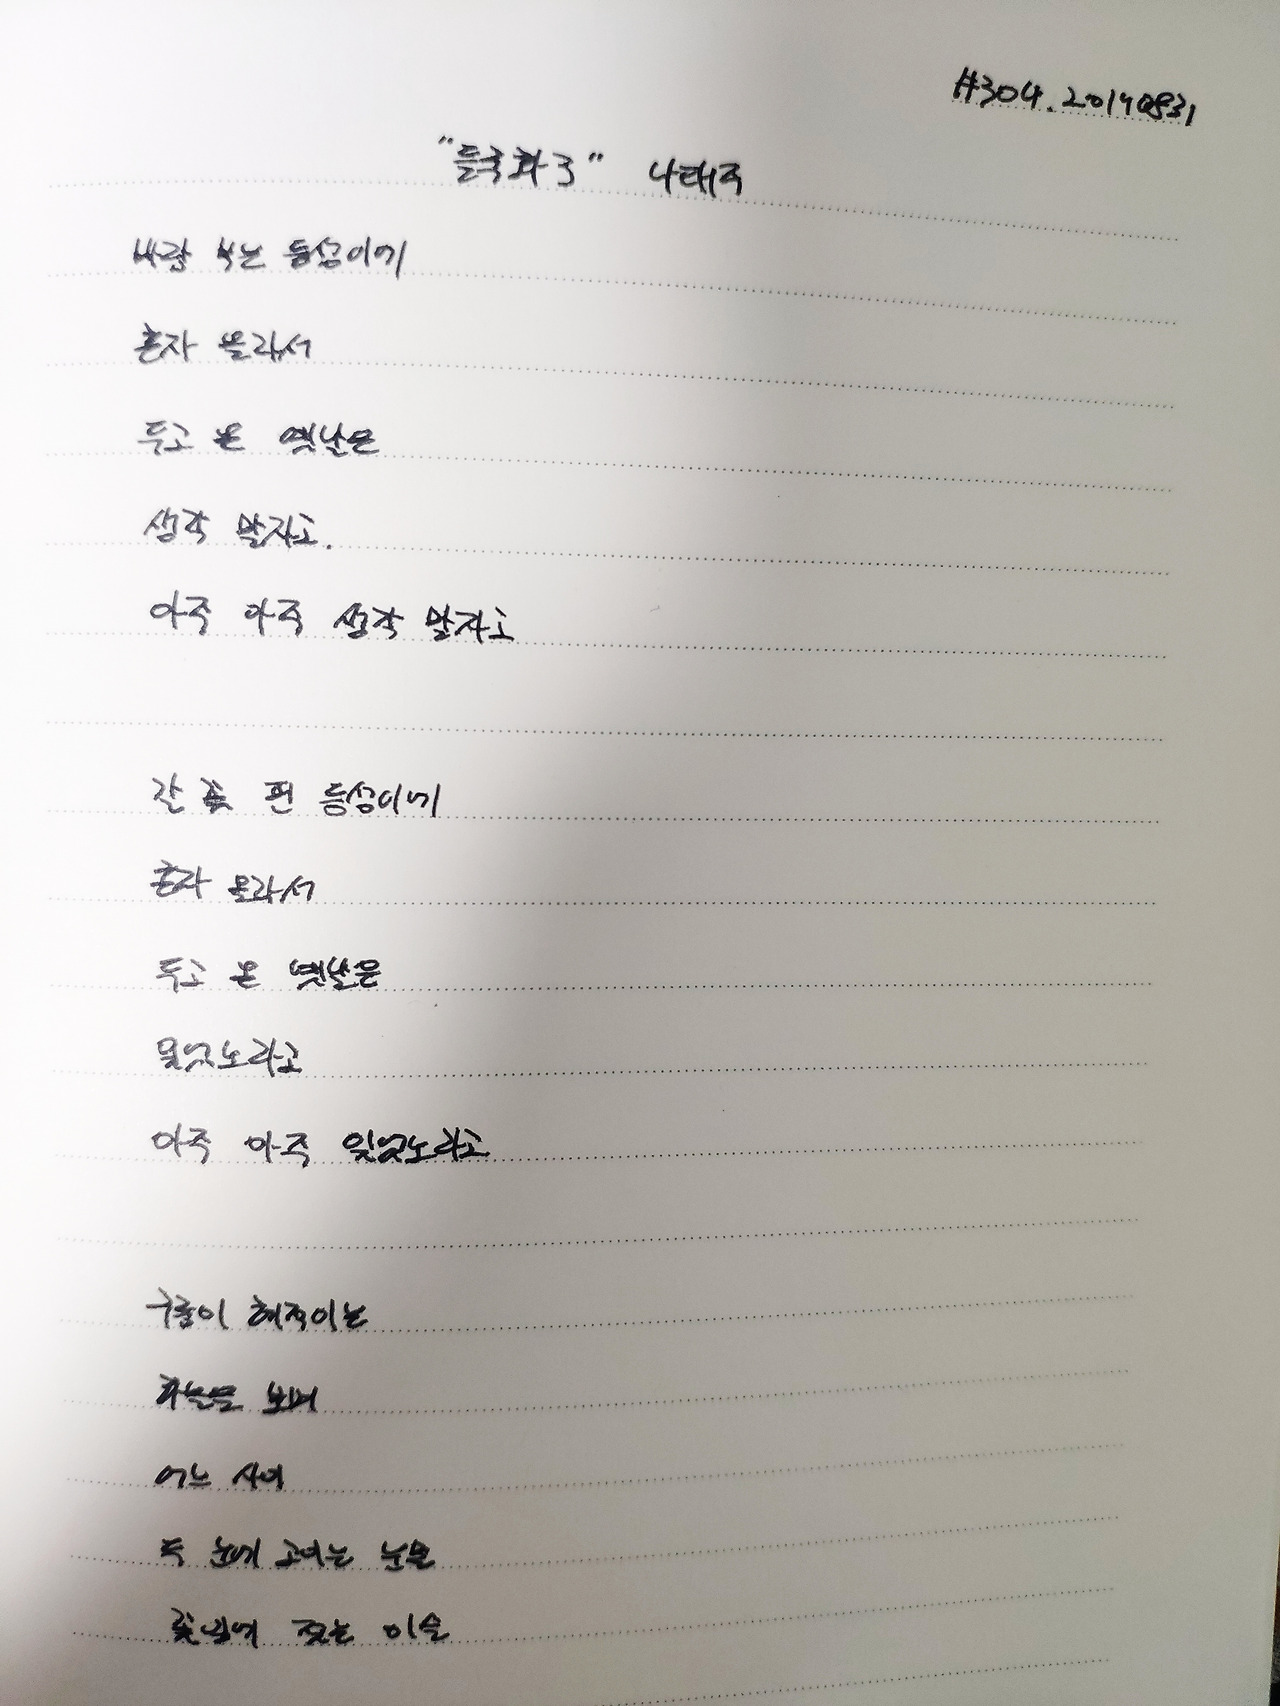 #304. 20190831
"들국화 3" 나태주
바람 부는 등성이에
혼자 올라서
두고 온 옛날은
생각 말자고.
아주 아주 생각 말자고
갈 꽃 핀 등성이에
혼자 올라서
두고 온 옛날은
잊었노라고
아주 아주 잊었노라고
구름이 헤적이는
하늘을 보며
어느 사이
두 눈에 고이는 눈물
꽃잎에 젖는 이슬